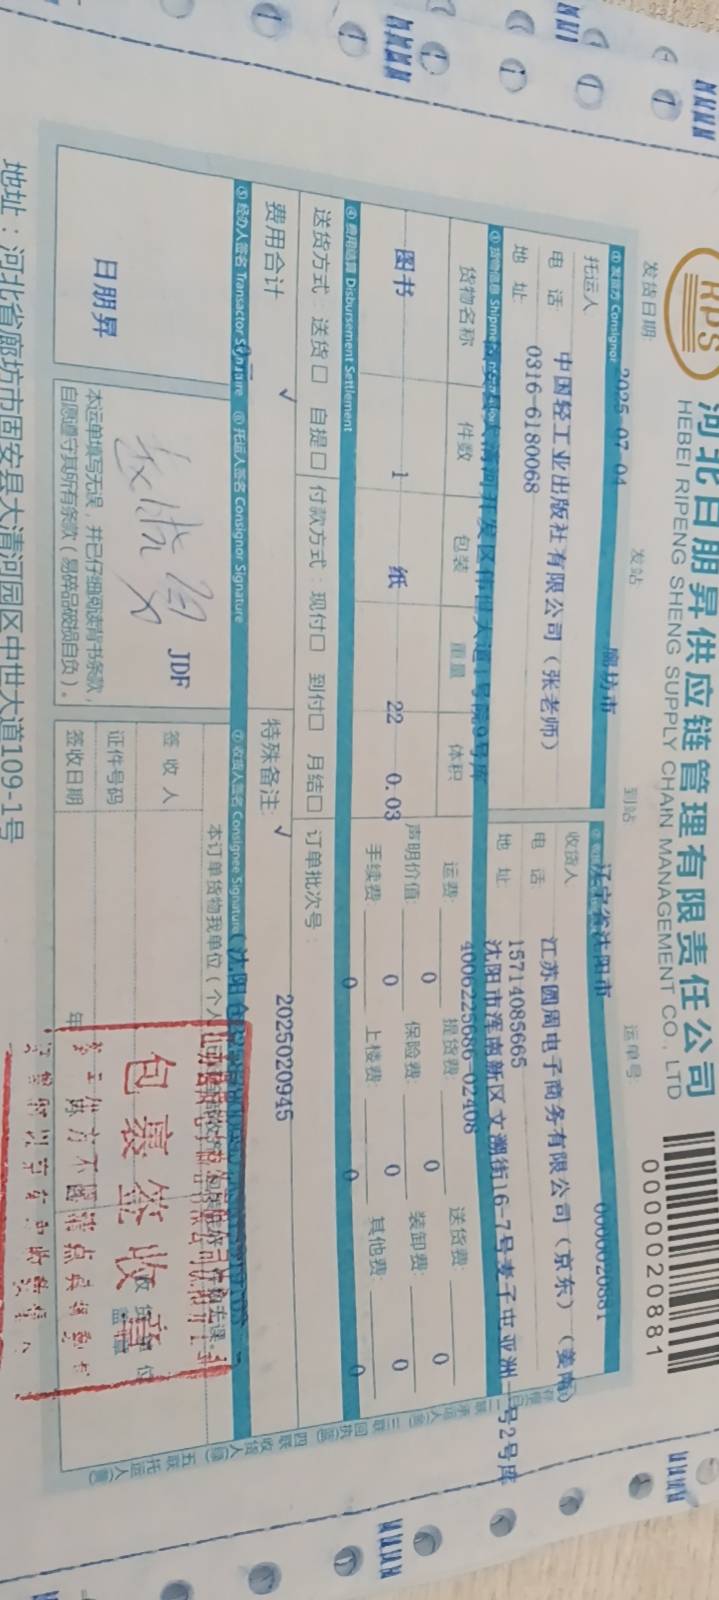 RPS
河北日朋昇供应链管理有限责任公司
HEBEI RIPENG SHENG SUPPLY CHAIN MANAGEMENT CO., LTD
0000020881
发货日期: 2025-07-04 发站 廊坊市 到站 辽宁省沈阳市 运单号 0000020881
① 发货方 Consignor
托运人 中国轻工业出版社有限公司（张老师）
电 话: 0316-6180068
地 址
大清河开发区伟世大道1号院9号库
收货人 江苏圆周电子商务有限公司（京东）（姜南）
电 话: 15714085665
地 址 沈阳市浑南新区文溯街16-7号孝子屯亚洲一号2号库
4006225686-02408
③ 货物信息
货物名称 件数 包装 重量 体积
图书 1 纸 22 0.03
运费: 0 提货费: 0 送货费: 0
声明价值: 0 保险费: 0 装卸费: 0
手续费: 0 上楼费: 0 其他费: 0
④ 费用结算 Disbursement Settlement
送货方式: 送货□ 自提□ 付款方式: 现付□ 到付□ 月结□ 订单批次号:
费用合计 √ 特殊备注: √ 2025020945
⑤ 经办人签名 Transactor Signature ⑥ 托运人签名 Consignor Signature ⑦ 收货人签名 Consignee Signature
日朋昇
JDF
本运单填写无误，并已仔细阅读背书条款，
自愿遵守其所有条款（易碎品破损自负）。
本订单货物我单位（个人
签 收 人
证件号码
签收日期 年
包裹签收章
地址：河北省廊坊市固安县大清河园区中世大道109-1号